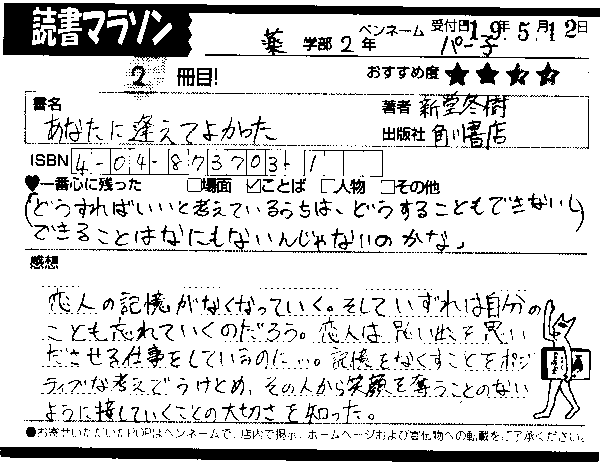 読書マラソン
薬 学部 2 年 ペンネーム パー子 受付日 19年 5月12日
2 冊目! おすすめ度 ★★★★
書名 あなたに逢えてよかった
著者 新堂冬樹
出版社 角川書店
ISBN 4-04-873703-1
♥一番心に残った □場面 ☑ことば □人物 □その他
(どうすればいいと考えているうちは、どうすることもできないし)
できることはなにもないんじゃないのかな」
感想
恋人の記憶がなくなっていく。そしていずれは自分の
ことも忘れていくのだろう。恋人は思い出を思い
ださせる仕事をしているのに…。記憶をなくすことをポジ
ティブな考えでうけとめ、その人から笑顔を奪うことのない
ように接していくことの大切さを知った。
●お寄せいただいたPOPはペンネームで、店内で掲示、ホームページおよび宣伝物への転載をご了承ください。